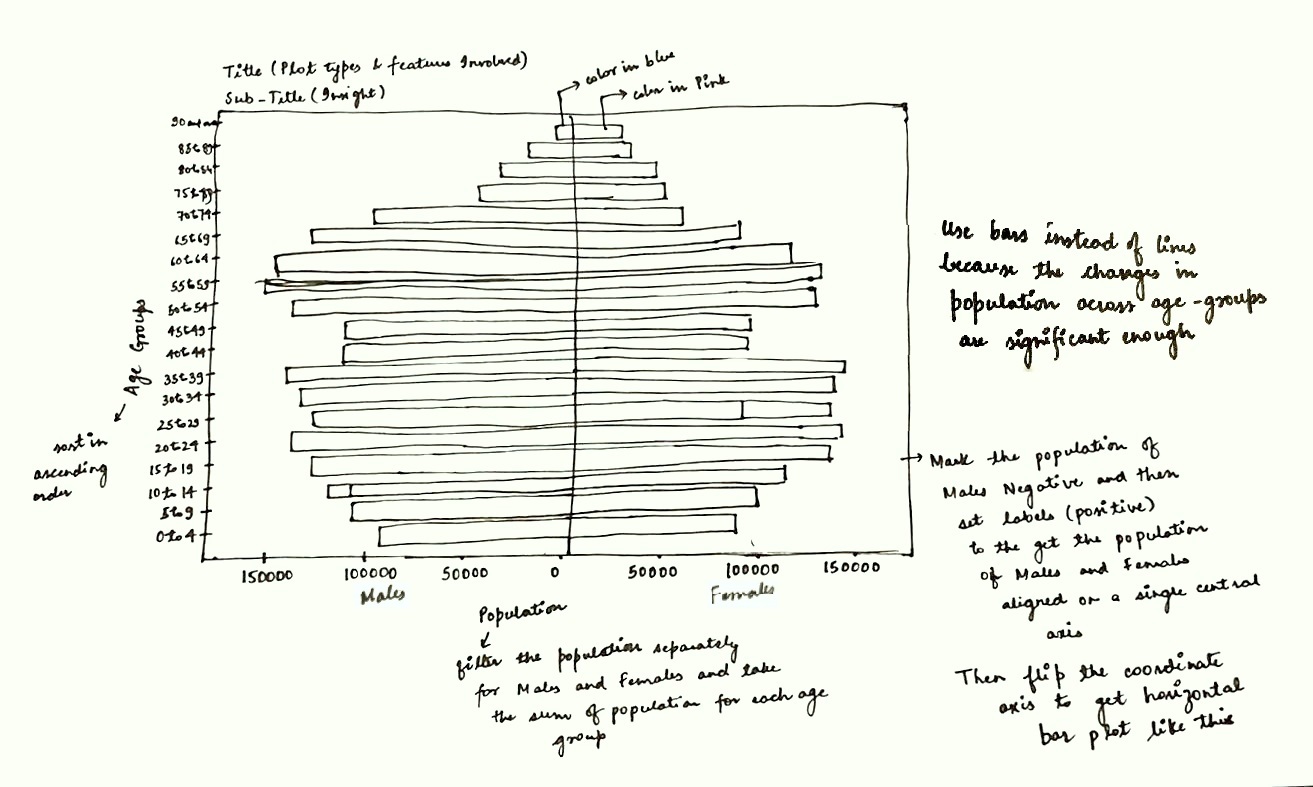 Title (Plot types & features Involved)
Sub-Title (Insight)
color in blue
color in Pink
90 and over
85to89
80to84
75to79
70to74
65to69
60to64
55to59
50to54
45to49
40to44
35to39
30to34
25to29
20to24
15to19
10to14
5to9
0to4
Age Groups
sort in
ascending
order
150000 100000 50000 0 50000 100000 150000
Males Females
Population
filter the population separately
for Males and Females and take
the sum of population for each age
group
Use bars instead of lines
because the changes in
population across age-groups
are significant enough
Mark the population of
Males Negative and then
set labels (positive)
to the get the population
of Males and Females
aligned on a single central
axis
Then flip the coordinate
axis to get horizontal
bar plot like this